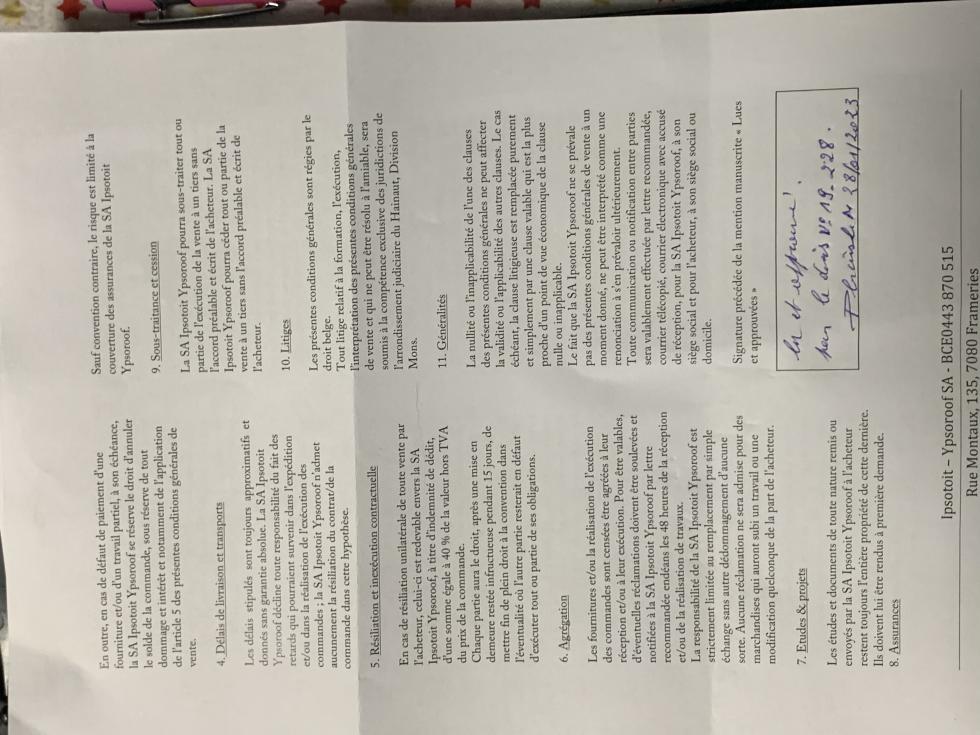 En outre, en cas de défaut de paiement d'une
fourniture et/ou d'un travail partiel, à son échéance,
la SA Ipsotoit Ypsoroof se réserve le droit d'annuler
le solde de la commande, sous réserve de tout
dommage et intérêt et notamment de l'application
de l'article 5 des présentes conditions générales de
vente.
4. Délais de livraison et transports
Les délais stipulés sont toujours approximatifs et
donnés sans garantie absolue. La SA Ipsotoit
Ypsoroof décline toute responsabilité du fait des
retards qui pourraient survenir dans l'expédition
et/ou dans la réalisation de l'exécution des
commandes ; la SA Ipsotoit Ypsoroof n'admet
aucunement la résiliation du contrat/de la
commande dans cette hypothèse.
5. Résiliation et inexécution contractuelle
En cas de résiliation unilatérale de toute vente par
l'acheteur, celui-ci est redevable envers la SA
Ipsotoit Ypsoroof, à titre d'indemnité de dédit,
d'une somme égale à 40 % de la valeur hors TVA
du prix de la commande.
Chaque partie aura le droit, après une mise en
demeure restée infructueuse pendant 15 jours, de
mettre fin de plein droit à la convention dans
l'éventualité où l'autre partie resterait en défaut
d'exécuter tout ou partie de ses obligations.
6. Agrégation
Les fournitures et/ou la réalisation de l'exécution
des commandes sont censées être agréées à leur
réception et/ou à leur exécution. Pour être valables,
d'éventuelles réclamations doivent être soulevées et
notifiées à la SA Ipsotoit Ypsoroof par lettre
recommandée endéans les 48 heures de la réception
et/ou de la réalisation de travaux.
La responsabilité de la SA Ipsotoit Ypsoroof est
strictement limitée au remplacement par simple
échange sans autre dédommagement d'aucune
sorte. Aucune réclamation ne sera admise pour des
marchandises qui auront subi un travail ou une
modification quelconque de la part de l'acheteur.
7. Etudes & projets
Les études et documents de toute nature remis ou
envoyés par la SA Ipsotoit Ypsoroof à l'acheteur
restent toujours l'entière propriété de cette dernière.
Ils doivent lui être rendus à première demande.
8. Assurances
Sauf convention contraire, le risque est limité à la
couverture des assurances de la SA Ipsotoit
Ypsoroof.
9. Sous-traitance et cession
La SA Ipsotoit Ypsoroof pourra sous-traiter tout ou
partie de l'exécution de la vente à un tiers sans
l'accord préalable et écrit de l'acheteur. La SA
Ipsotoit Ypsoroof pourra céder tout ou partie de la
vente à un tiers sans l'accord préalable et écrit de
l'acheteur.
10. Litiges
Les présentes conditions générales sont régies par le
droit belge.
Tout litige relatif à la formation, l'exécution,
l'interprétation des présentes conditions générales
de vente et qui ne peut être résolu à l'amiable, sera
soumis à la compétence exclusive des juridictions de
l'arrondissement judiciaire du Hainaut, Division
Mons.
11. Généralités
La nullité ou l'inapplicabilité de l'une des clauses
des présentes conditions générales ne peut affecter
la validité ou l'applicabilité des autres clauses. Le cas
échéant, la clause litigieuse est remplacée purement
et simplement par une clause valable qui est la plus
proche d'un point de vue économique de la clause
nulle ou inapplicable.
Le fait que la SA Ipsotoit Ypsoroof ne se prévale
pas des présentes conditions générales de vente à un
moment donné, ne peut être interprété comme une
renonciation à s'en prévaloir ultérieurement.
Toute communication ou notification entre parties
sera valablement effectuée par lettre recommandée,
courrier télécopié, courrier électronique avec accusé
de réception, pour la SA Ipsotoit Ypsoroof, à son
siège social et pour l'acheteur, à son siège social ou
domicile.
Signature précédée de la mention manuscrite « Lues
et approuvées »
lu et approuvé !
le devis N° 19-228.
28/01/2023
Ipsotoit – Ypsoroof SA - BCE0443 870 515
Rue Montaux, 135, 7080 Frameries